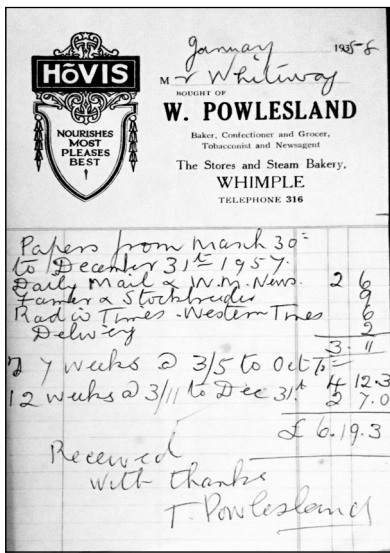 HōVIS
NOURISHES
MOST
PLEASES
BEST
January 1935-8
Mr Whiteway
BOUGHT OF
W. POWLESLAND
Baker, Confectioner and Grocer,
Tobacconist and Newsagent
The Stores and Steam Bakery,
WHIMPLE
TELEPHONE 316
Papers from March 30th
to December 31st 1957.
Daily Mail & W.M. News 2 6
Farmer & Stockbreeder 9
Radio Times - Western Times 6
Delivery 2
3.11
27 weeks @ 3/5 to Oct 5th 4 12.3
12 weeks @ 3/11 to Dec 31st 2 7.0
£ 6.19.3
Received
with thanks
T. Powlesland